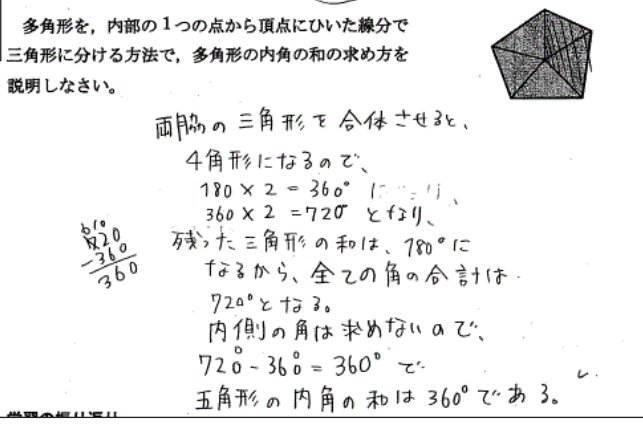 多角形を，内部の1つの点から頂点にひいた線分で
三角形に分ける方法で，多角形の内角の和の求め方を
説明しなさい。
両脇の三角形を合体させると、
4角形になるので、
180 × 2 = 360°
360 × 2 = 720° となり、
残った三角形の和は、180°に
なるから、全ての角の合計は
720°となる。
内側の角は求めないので、
720 - 360 = 360° で
五角形の内角の和は360°である。
720
-360
360